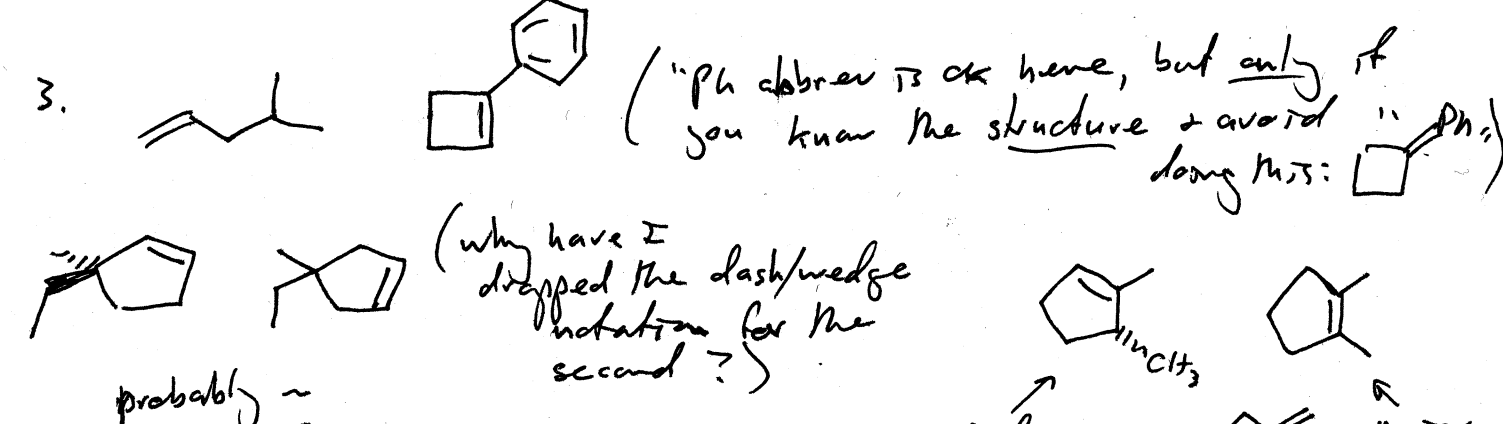 3.
("Ph abbrev is ok here, but only if
you know the structure & avoid
doing this: "Ph")
(why have I
dropped the dash/wedge
notation for the
second?)
CH3
probably ~